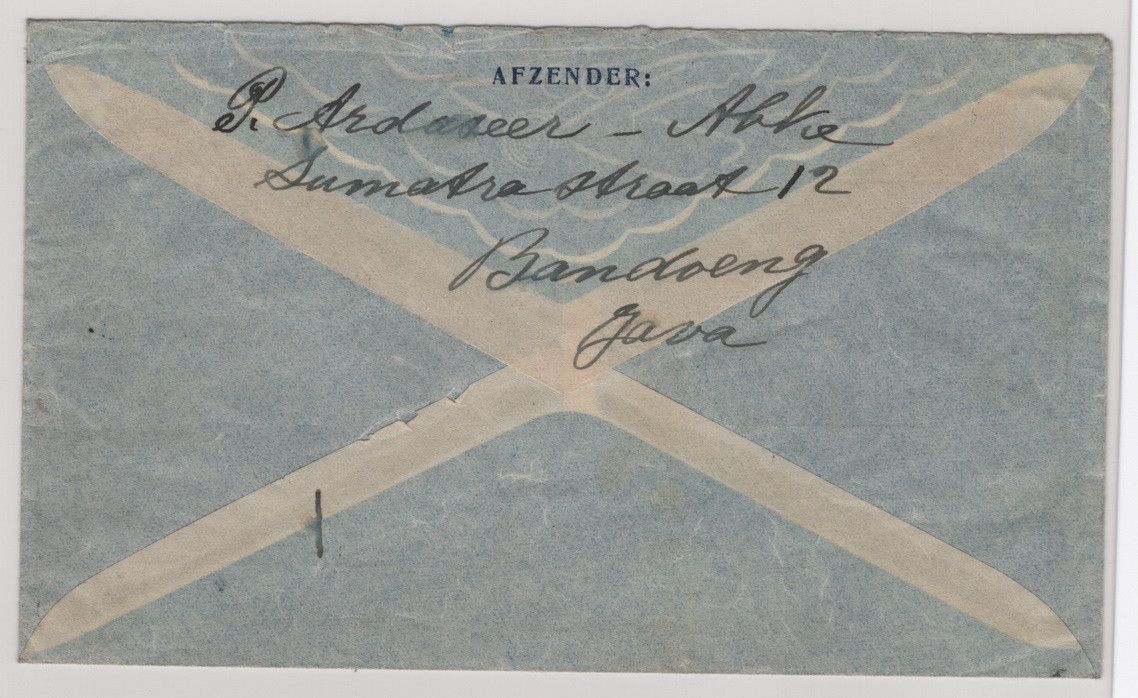 AFZENDER:
P. Ardaseer - Abbie
Sumatra straat 12
Bandoeng
Java